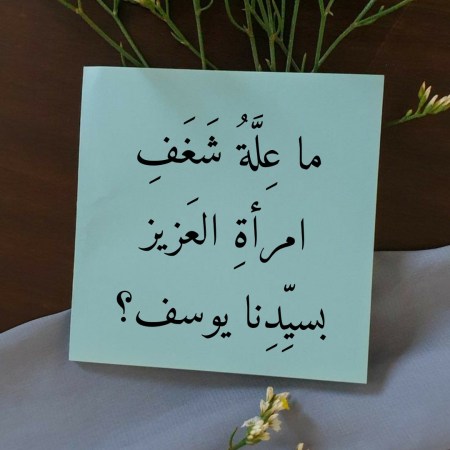 ما عِلَّةُ شَغَفِ
امرأةِ العَزيز
بسيِّدِنا يوسف؟